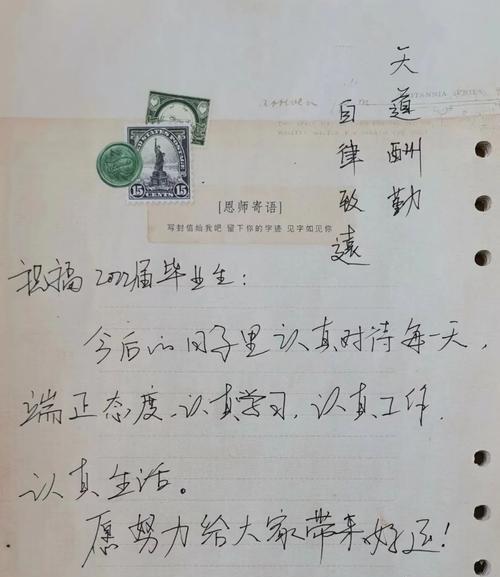 天道酬勤
自律致远
BRITANNIA (SERIES)
15
15
[恩师寄语]
写封信给我吧 留下你的字迹 见字如见你
祝福2022届毕业生:
今后的日子里认真对待每一天,
端正态度、认真学习、认真工作、
认真生活。
愿努力给大家带来好运!